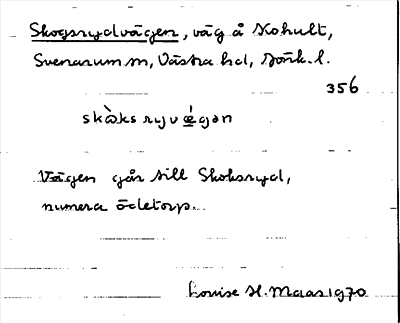 Skogsrydvägen, väg å Kohult,
Svenarum sn, Västra hd, Jönk. l.
356
skɷ̀ksryvǽgən
Vägen går till Skoksryd,
numera ödetorp.
Louise H. Maas 1970